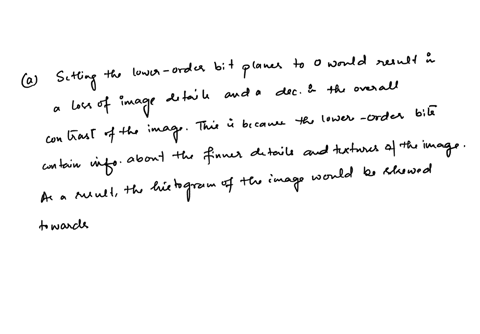 (a) Setting the lower-order bit planes to 0 would result in
a loss of image details and a dec. in the overall
contrast of the image. This is because the lower-order bits
contain info. about the finner details and textures of the image.
As a result, the histogram of the image would be skewed
towards